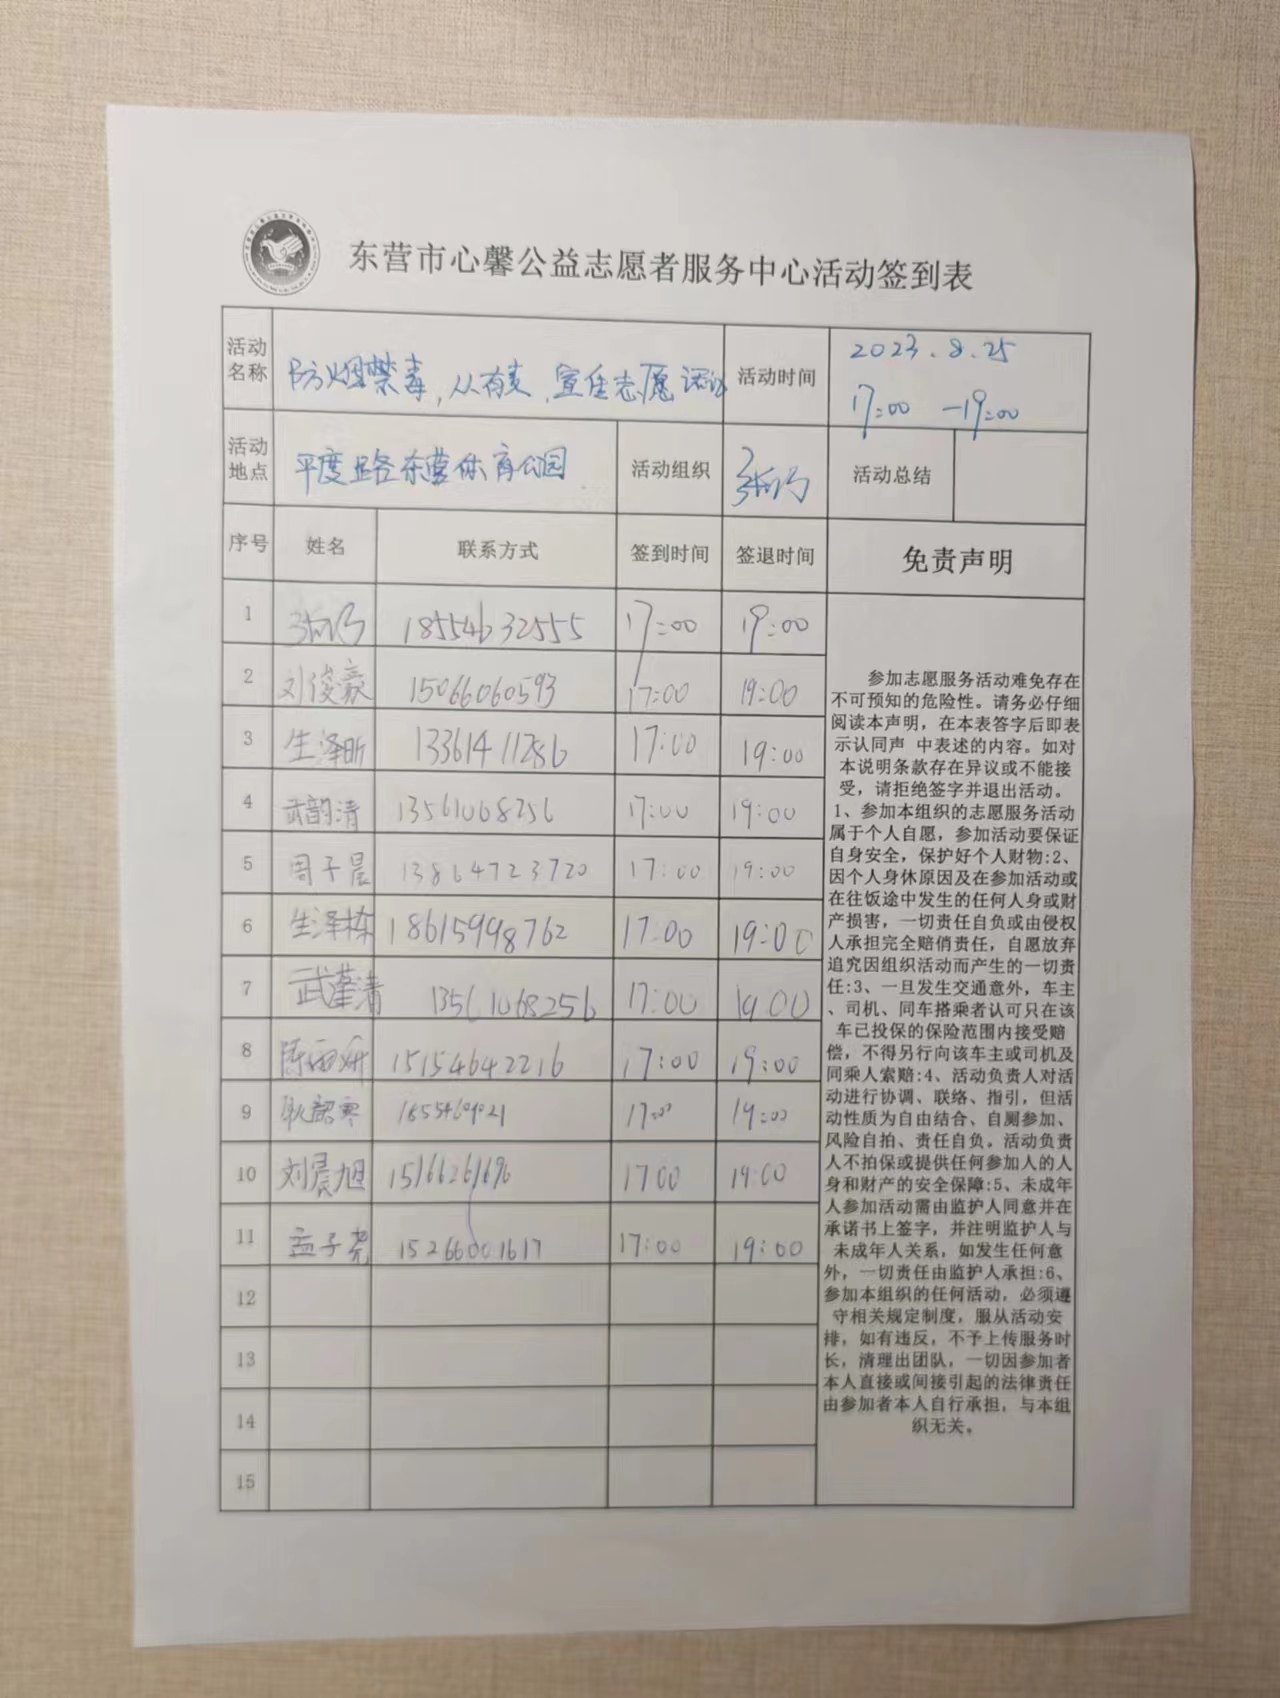 东营市心馨公益志愿者服务中心活动签到表
活动名称 防烟禁毒,从有责,宣传志愿 活动时间 2023.8.25
17:00 -19:00
活动地点 平度路东营体育公园 活动组织 活动总结
序号 姓名 联系方式 签到时间 签退时间 免责声明
1 18554632555 17:00 19:00
2 刘俊豪 15066060593 17:00 19:00
3 生泽昕 13361411286 17:00 19:00
4 武韵清 13561068256 17:00 19:00
5 周子晨 13864723720 17:00 19:00
6 生泽栋 18615998762 17:00 19:00
7 武蕴清 13561068256 17:00 19:00
8 陈雨妍 15154642216 17:00 19:00
9 17:00 19:00
10 刘晨旭 15166261696 1700 19:00
11 孟子尧 15266001617 17:00 19:00
12
13
14
15
参加志愿服务活动难免存在
不可预知的危险性。请务必仔细
阅读本声明，在本表答字后即表
示认同声 中表述的内容。如对
本说明条款存在异议或不能接
受，请拒绝签字并退出活动。
1、参加本组织的志愿服务活动
属于个人自愿，参加活动要保证
自身安全，保护好个人财物:2、
因个人身休原因及在参加活动或
在往饭途中发生的任何人身或财
产损害，一切责任自负或由侵权
人承担完全赔俏责任，自愿放弃
追究因组织活动而产生的一切责
任:3、一旦发生交通意外，车主
、司机、同车搭乘者认可只在该
车已投保的保险范围内接受赔
偿，不得另行向该车主或司机及
同乘人索赔:4、活动负责人对活
动进行协调、联络、指引，但活
动性质为自由结合、自愿参加、
风险自拍、责任自负。活动负责
人不拍保或提供任何参加人的人
身和财产的安全保障:5、未成年
人参加活动需由监护人同意并在
承诺书上签字，并注明监护人与
未成年人关系，如发生任何意
外，一切责任由监护人承担:6、
参加本组织的任何活动，必须遵
守相关规定制度，服从活动安
排，如有违反，不予上传服务时
长，清理出团队，一切因参加者
本人直接或间接引起的法律责任
由参加者本人自行承担，与本组
织无关。